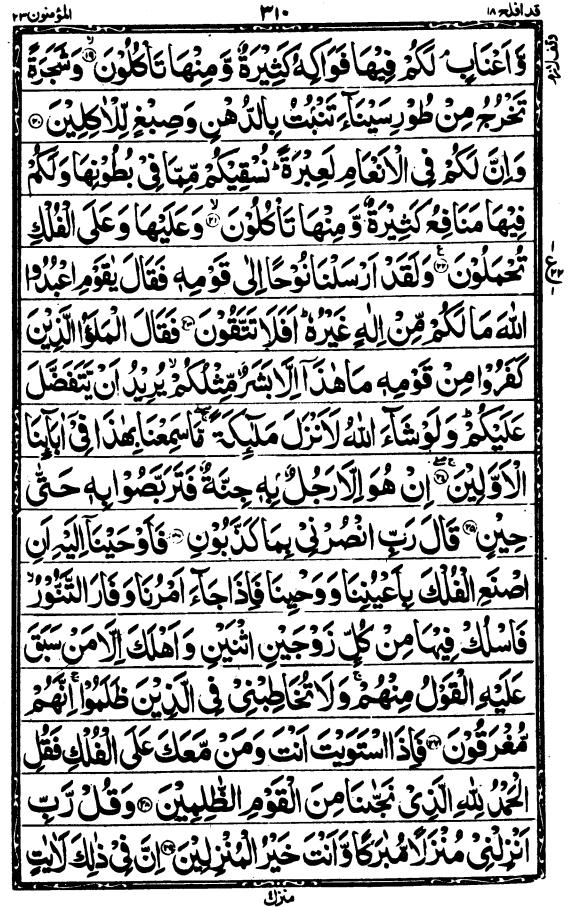 قد افلح ١٨ ٣١٠ المؤمنون ٢٣
وَّاَعْنَابٍ ۘ لَكُمْ فِيْهَا فَوَاكِهُ كَثِيْرَةٌ وَّمِنْهَا تَاْكُلُوْنَ ۙ﴿۱۹﴾ وَشَجَرَةً
تَخْرُجُ مِنْ طُوْرِ سَيْنَآءَ تَنْۢبُتُ بِالدُّهْنِ وَصِبْغٍ لِّلْاٰكِلِيْنَ ﴿۲۰﴾
وَاِنَّ لَكُمْ فِى الْاَنْعَامِ لَعِبْرَةً ؕ نُسْقِيْكُمْ مِّمَّا فِىْ بُطُوْنِهَا وَلَكُمْ
فِيْهَا مَنَافِعُ كَثِيْرَةٌ وَّمِنْهَا تَاْكُلُوْنَ ۙ﴿۲۱﴾ وَعَلَيْهَا وَعَلَى الْفُلْكِ
تُحْمَلُوْنَ ﴿۲۲﴾ وَلَقَدْ اَرْسَلْنَا نُوْحًا اِلٰى قَوْمِهٖ فَقَالَ يٰقَوْمِ اعْبُدُوا
اللّٰهَ مَا لَكُمْ مِّنْ اِلٰهٍ غَيْرُهٗ ؕ اَفَلَا تَتَّقُوْنَ ﴿۲۳﴾ فَقَالَ الْمَلَؤُا الَّذِيْنَ
كَفَرُوْا مِنْ قَوْمِهٖ مَا هٰذَاۤ اِلَّا بَشَرٌ مِّثْلُكُمْ ۙ يُرِيْدُ اَنْ يَّتَفَضَّلَ
عَلَيْكُمْ ؕ وَلَوْ شَآءَ اللّٰهُ لَاَنْزَلَ مَلٰٓئِكَةً ۖۚ مَّا سَمِعْنَا بِهٰذَا فِىْۤ اٰبَآئِنَا
الْاَوَّلِيْنَ ۚ﴿۲۴﴾ اِنْ هُوَ اِلَّا رَجُلٌۢ بِهٖ جِنَّةٌ فَتَرَبَّصُوْا بِهٖ حَتّٰى
حِيْنٍ ﴿۲۵﴾ قَالَ رَبِّ انْصُرْنِىْ بِمَا كَذَّبُوْنِ ﴿۲۶﴾ فَاَوْحَيْنَاۤ اِلَيْهِ اَنِ
اصْنَعِ الْفُلْكَ بِاَعْيُنِنَا وَوَحْيِنَا فَاِذَا جَآءَ اَمْرُنَا وَفَارَ التَّنُّوْرُ ۙ
فَاسْلُكْ فِيْهَا مِنْ كُلٍّ زَوْجَيْنِ اثْنَيْنِ وَاَهْلَكَ اِلَّا مَنْ سَبَقَ
عَلَيْهِ الْقَوْلُ مِنْهُمْ ۚ وَلَا تُخَاطِبْنِىْ فِى الَّذِيْنَ ظَلَمُوْا ۚ اِنَّهُمْ
مُّغْرَقُوْنَ ﴿۲۷﴾ فَاِذَا اسْتَوَيْتَ اَنْتَ وَمَنْ مَّعَكَ عَلَى الْفُلْكِ فَقُلِ
الْحَمْدُ لِلّٰهِ الَّذِىْ نَجّٰىنَا مِنَ الْقَوْمِ الظّٰلِمِيْنَ ﴿۲۸﴾ وَقُلْ رَّبِّ
اَنْزِلْنِىْ مُنْزَلًا مُّبٰرَكًا وَّاَنْتَ خَيْرُ الْمُنْزِلِيْنَ ﴿۲۹﴾ اِنَّ فِىْ ذٰلِكَ لَاٰيٰتٍ